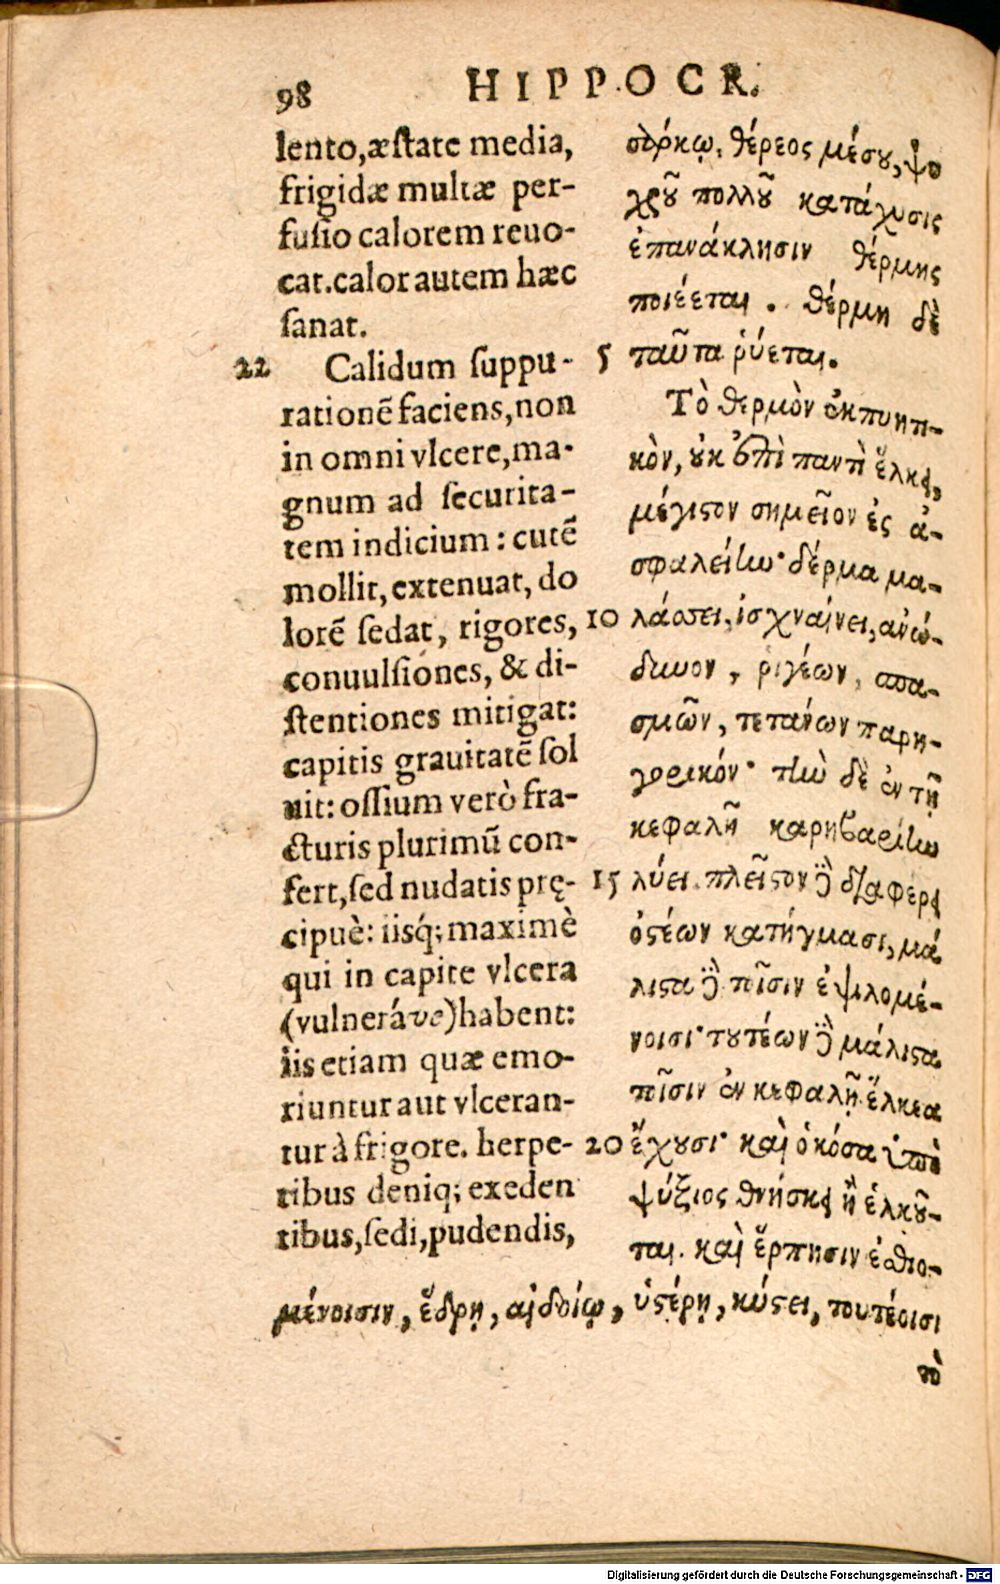 98 HIPPOCR.
lento,æstate media,
frigidæ multæ per-
fusio calorem reuo-
cat.calor autem hæc
sanat.
22 Calidum suppu-
rationẽ faciens,non
in omni vlcere,ma-
gnum ad securita-
tem indicium : cutẽ
mollit, extenuat, do
lorẽ sedat, rigores,
conuulsiones, & di-
stentiones mitigat:
capitis grauitatẽ sol
uit: ossium verò fra-
cturis plurimũ con-
fert,sed nudatis prę-
cipuè: iisq́; maximè
qui in capite vlcera
(vulneráve)habent:
iis etiam quæ emo-
riuntur aut vlceran-
tur à frigore. herpe-
tibus deniq; exeden
tibus,sedi,pudendis,
σάρκῳ, θέρεος μέσου, ψυ
χροῦ πολλοῦ κατάχυσις
ἐπανάκλησιν θέρμης
ποιέεται . θέρμη δὲ
5 ταῦτα ῥύεται.
Τὸ θερμὸν ἐκπυητι-
κὸν, οὐκ ἐπὶ παντὶ ἕλκει,
μέγιστον σημεῖον ἐς ἀ-
σφαλείην· δέρμα μα-
10 λάσσει, ἰσχναίνει, ἀνώ-
δυνον, ῥιγέων, σπα-
σμῶν, τετάνων παρη-
γορικόν· τὴν δὲ ἐν τῇ
κεφαλῇ καρηβαρίην
15 λύει. πλεῖστον δὲ διαφέρει
ὀστέων κατήγμασι, μά
λιστα δὲ τοῖσιν ἐψιλωμέ-
νοισι· τουτέων δὲ μάλιστα
τοῖσιν ἐν κεφαλῇ ἕλκεα
20 ἔχουσι· καὶ ὁκόσα ὑπὸ
ψύξιος θνήσκει ἢ ἑλκοῦ-
ται. καὶ ἕρπησιν ἐσθιο-
μένοισιν, ἕδρῃ, αἰδοίῳ, ὑστέρῃ, κύστει, τουτέοισι
τὸ
Digitalisierung gefördert durch die Deutsche Forschungsgemeinschaft - DFG